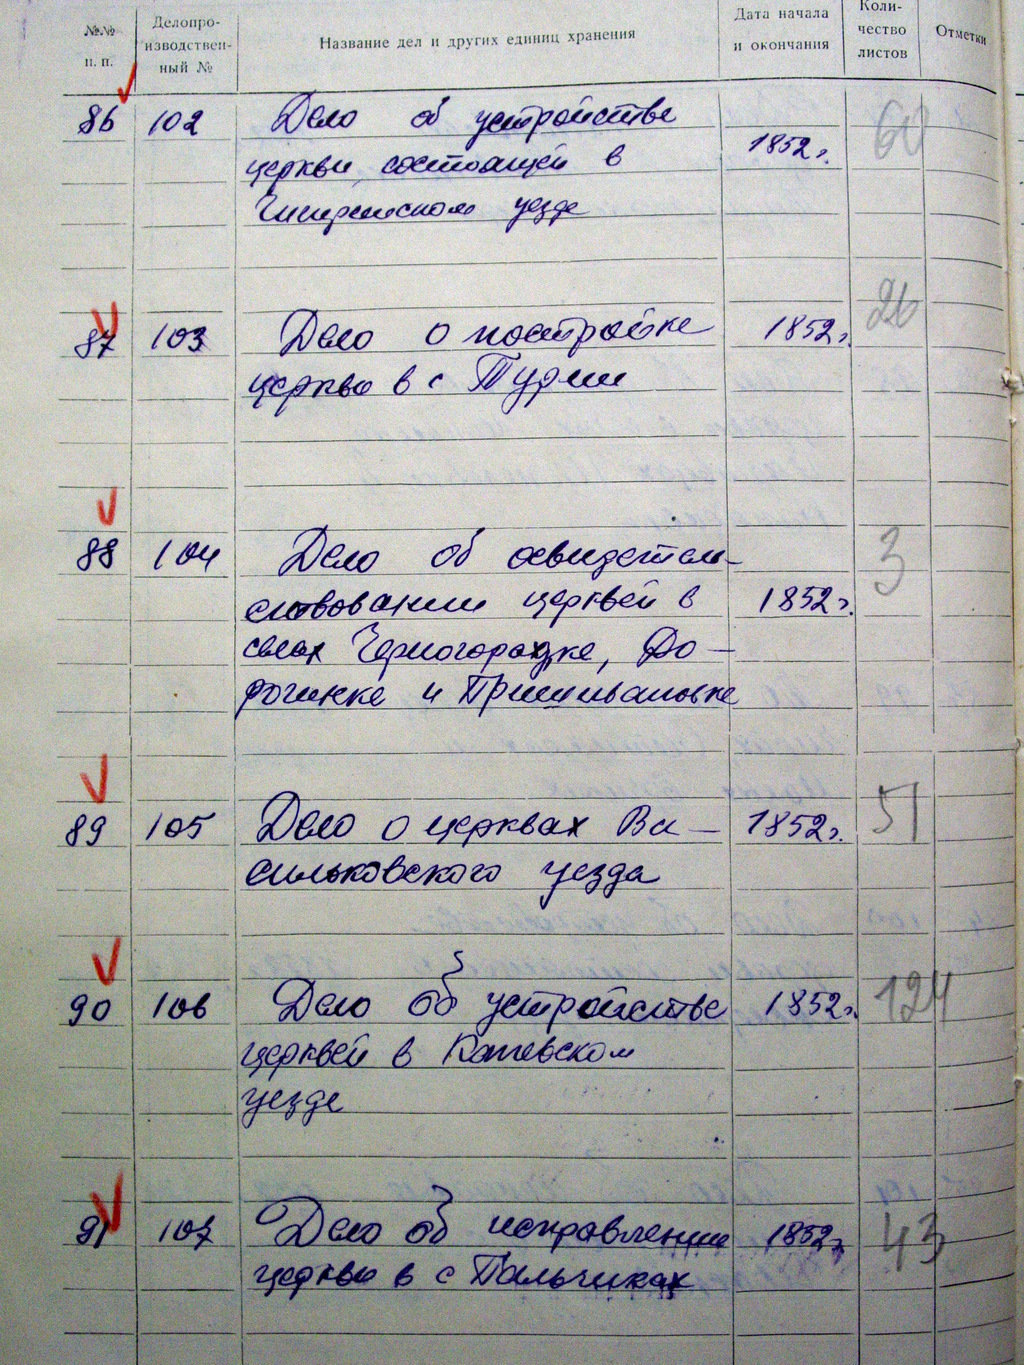 №№ п. п.
Делопро-
изводствен-
ный №
Название дел и других единиц хранения
Дата начала
и окончания
Коли-
чество
листов
Отметки
86 102 Дело об устройстве 60
церкви, состоящей в 1852 г.
Чигиринском уезде
87 103 Дело о постройке 1852 г. 26
церкви в с Турии
88 104 Дело об освидетель- 3
ствовании церквей в 1852 г.
селах Черногородке, До-
рогинке и
89 105 Дело о церквах Ва- 1852 г. 51
сильковского уезда
90 106 Дело об устройстве 1852 г. 124
церквей в Каневском
уезде
91 107 Дело об исправлении 1852 г. 43
церкви в с Пальчиках